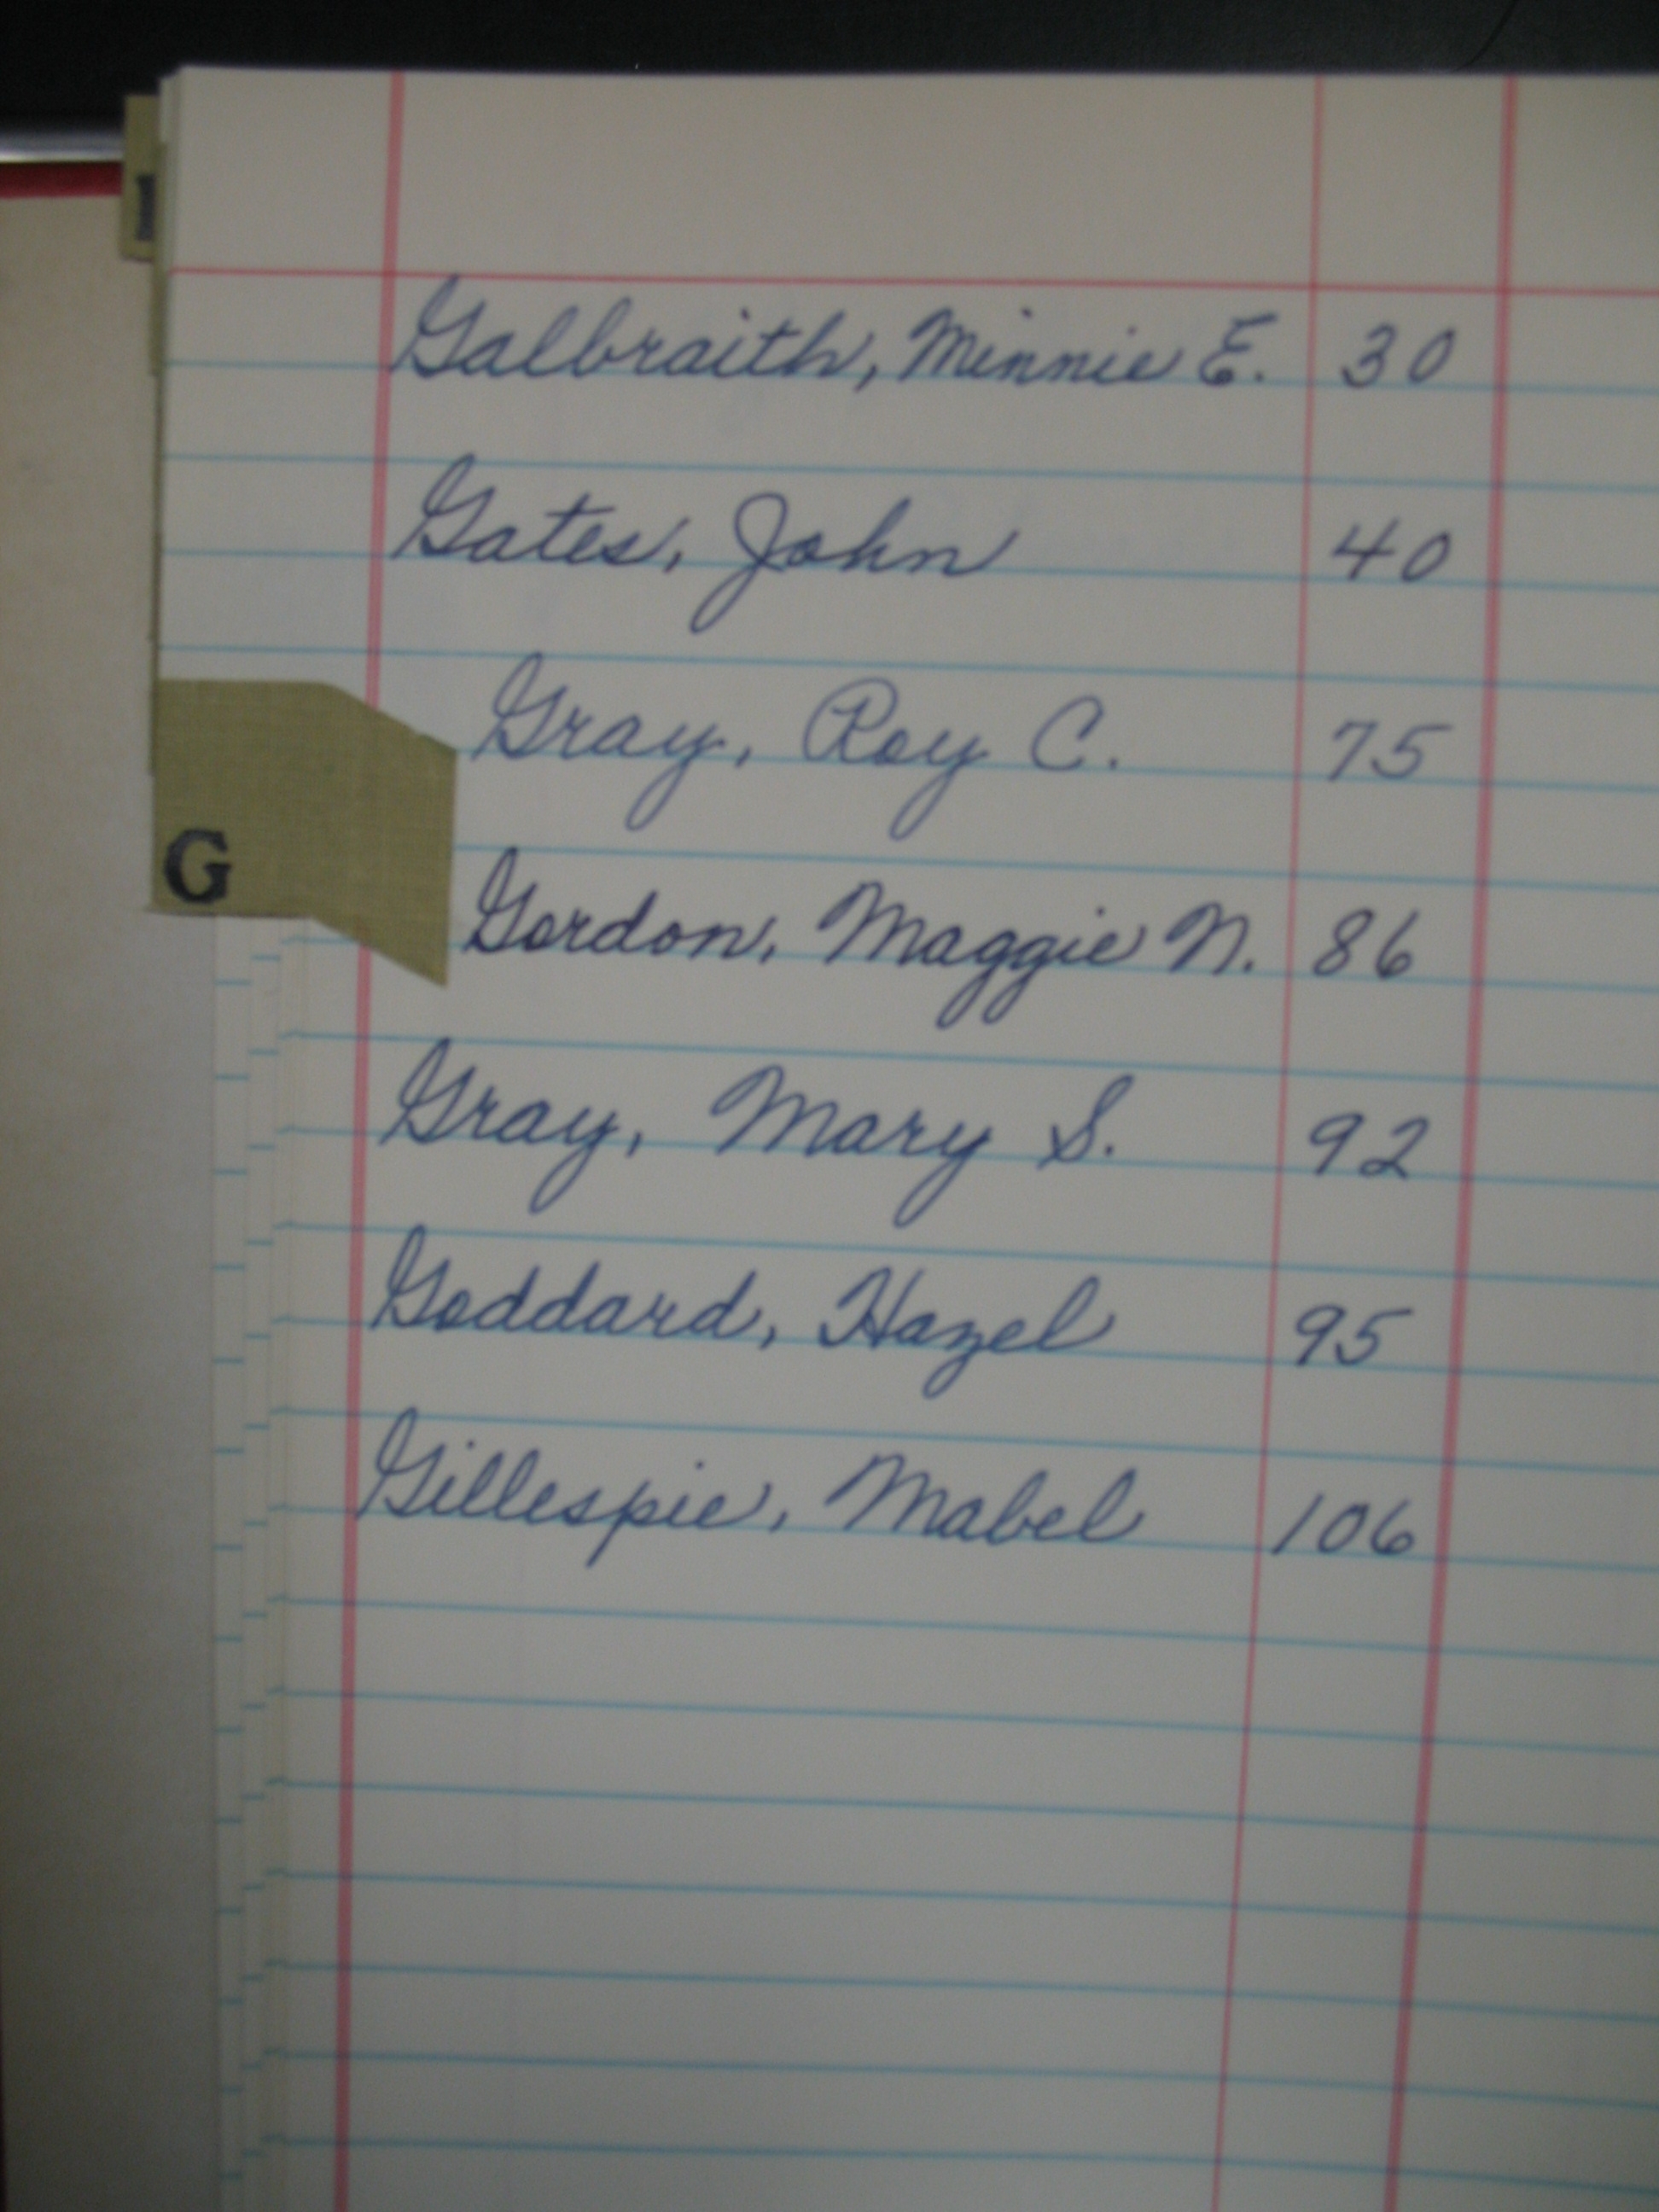 Galbraith, Minnie E. 30
Gates, John 40
Gray, Roy C. 75
G
Gordon, Maggie N. 86
Gray, Mary S. 92
Goddard, Hazel 95
Gillespie, Mabel 106